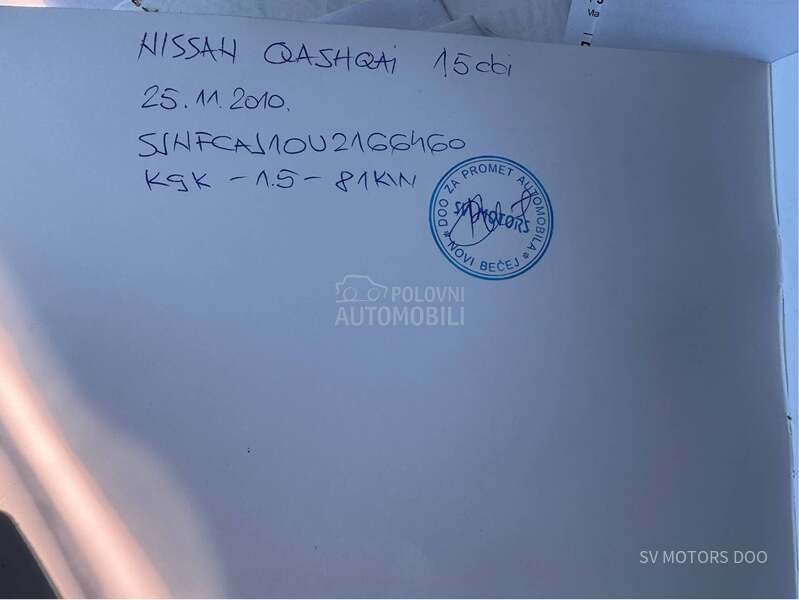 NISSAN QASHQAI 1,5 dci
25.11.2010.
SJNFCAJ10U2166460
K9K - 1.5 - 81KW
* DOO ZA PROMET AUTOMOBILA *
SV MOTORS
NOVI BEČEJ
POLOVNI
AUTOMOBILI
SV MOTORS DOO